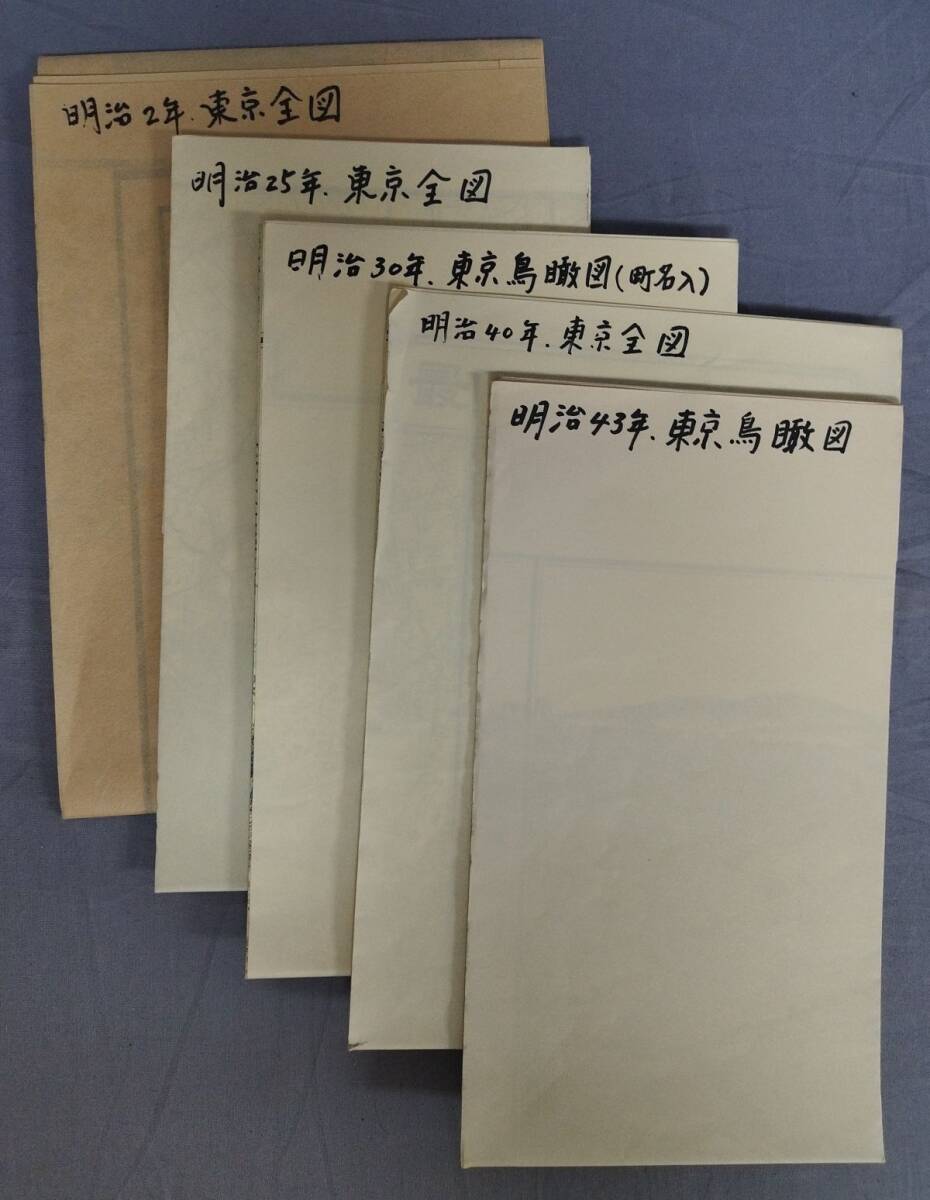 明治2年.東京全図
明治25年.東京全図
明治30年.東京鳥瞰図(町名入)
明治40年.東京全図
明治43年.東京鳥瞰図